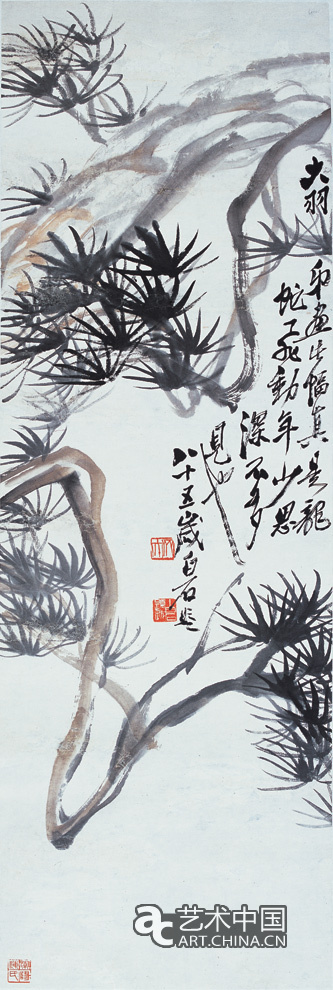 大羽弟画此幅真是龍
蛇飛動年少思
深不多
見也
八十五歲白石題
ac 艺术中国
ART.CHINA.CN